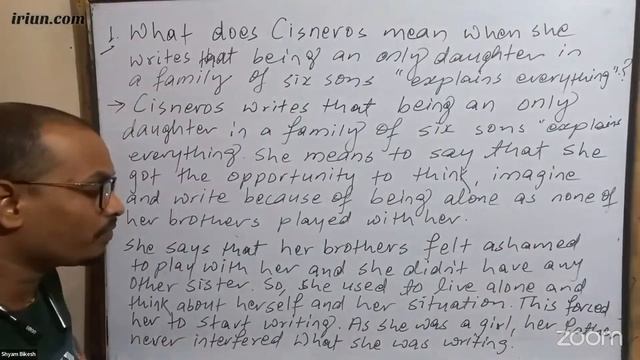 iriun.com
1. What does Cisneros mean when she
writes that being an only daughter in
a family of six sons "explains everything"?
→ Cisneros writes that being an only
daughter in a family of six sons "explains
everything. She means to say that she
got the opportunity to think, imagine
and write because of being alone as none of
her brothers played with her.
She says that her brothers felt ashamed
to play with her and she didn't have any
other sister. So, she used to live alone and
think about herself and her situation. This forced
her to start writing. As she was a girl, her
never interfered what she was writing.
zoom
Shyam Bikesh